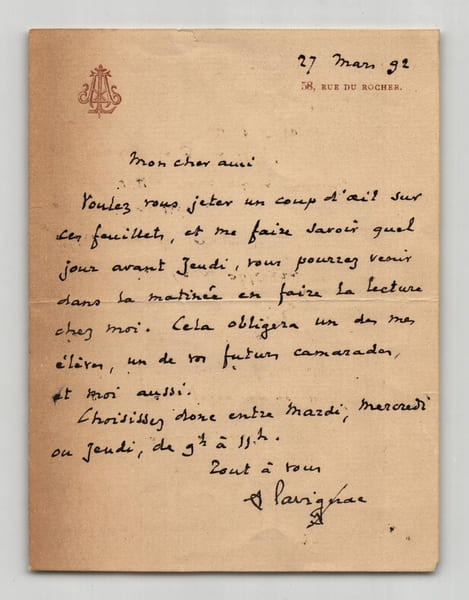 27 Mars 92
58, RUE DU ROCHER.
Mon cher ami
Voulez vous jeter un coup d'œil sur
ces feuillets, et me faire savoir quel
jour avant Jeudi, vous pourrez venir
dans la matinée en faire la lecture
chez moi. Cela obligera un de mes
élèves, un de vos futurs camarades,
et moi aussi.
Choisissez donc entre Mardi, Mercredi
ou Jeudi, de 9h à 11h.
Tout à vous
A Lavignac